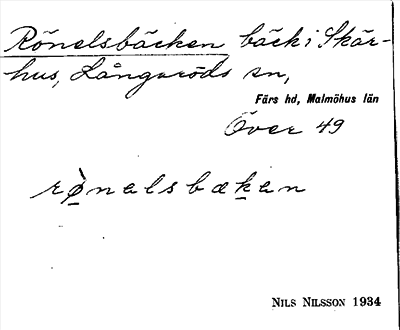 Rönelsbäcken bäck i Skär-
hus, Långaröds sn,
Färs hd, Malmöhus län
Över 49
rø̀nalsbækan
NILS NILSSON 1934